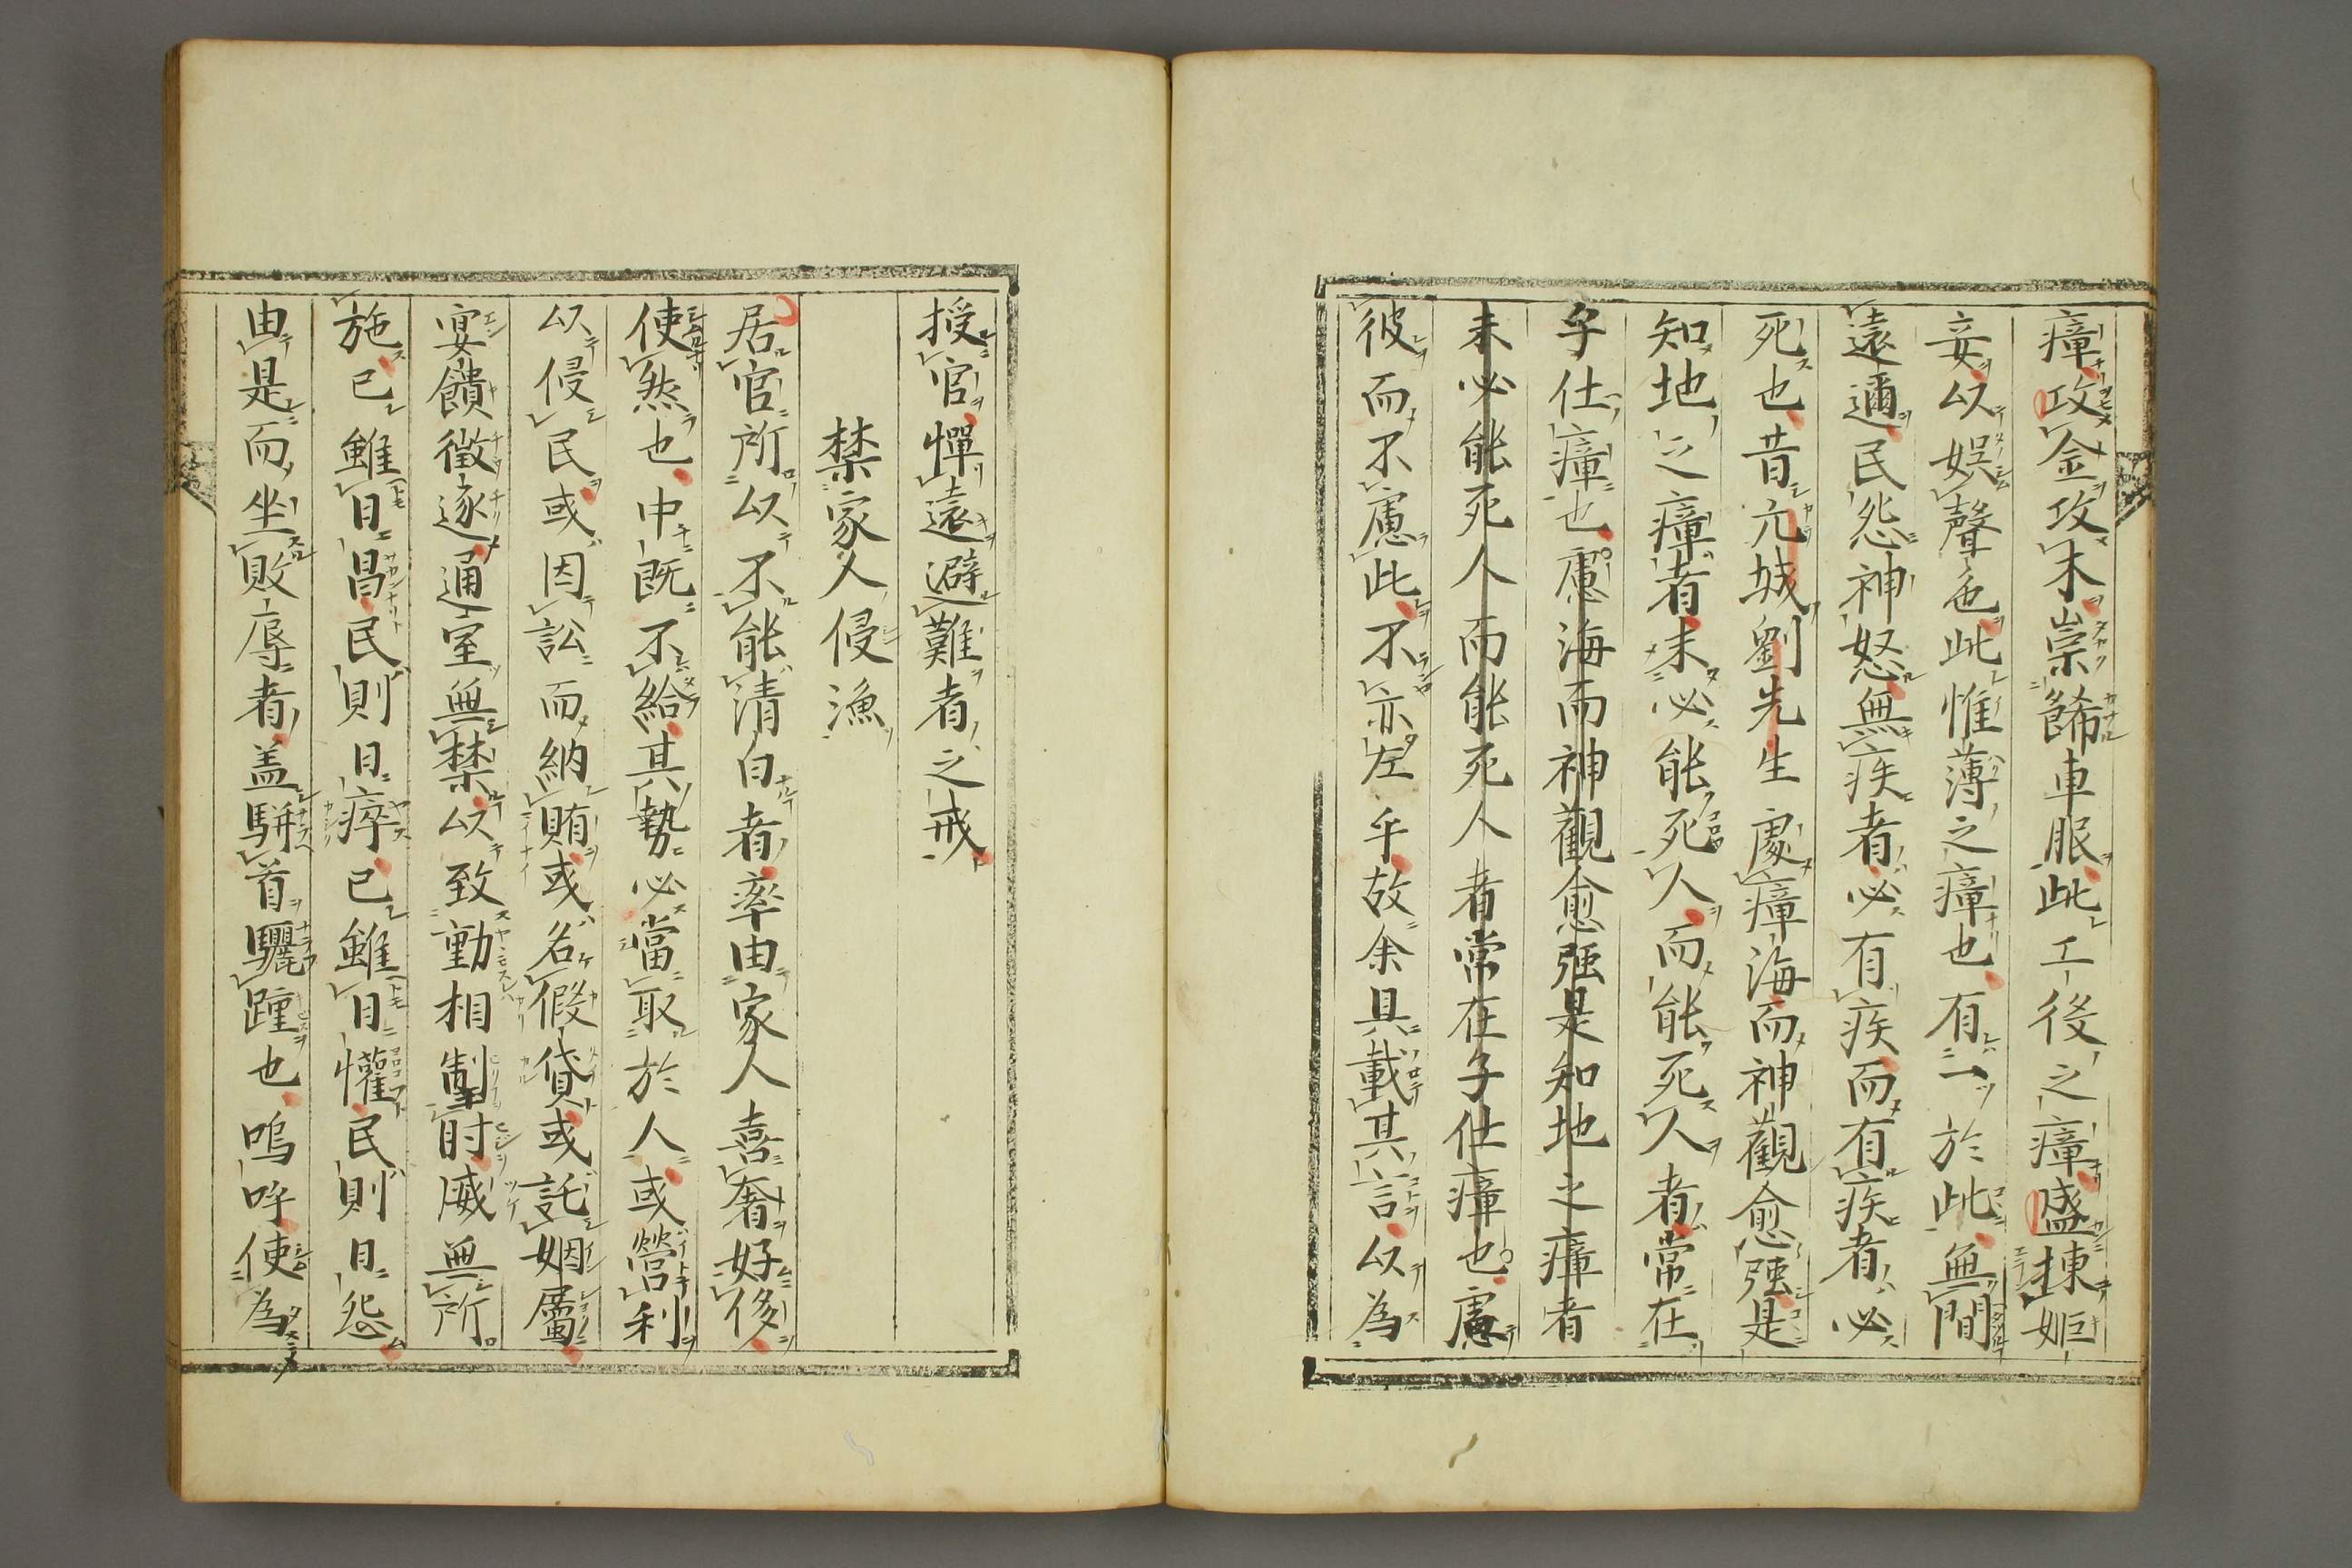 瘴攻金攻木崇餙車服此工役之瘴盛揀姬
妾以娯聲色此惟薄之瘴也有一於此無間
遠邇民怨神怒無疾者必有疾而有疾者必
死也昔元城劉先生處瘴海而神觀愈强是
知地之瘴者未必能死人而能死人者常在
乎仕瘴也慮海而神觀愈强是知地之瘴者
未必能死人而能死人者常在乎仕瘴也慮
彼而不慮此不亦左乎故余具載其言以為
授官憚遠避難者之戒
禁家人侵漁
居官所以不能清白者率由家人喜奢好侈
使然也中既不給其勢必當取於人或營利
以侵民或因訟而納賄或名假貸或託姻属
宴饋徵逐通室無禁以致動相掣肘威無所
施已雖日昌民則日瘁已雖日懽民則日怨
由是而坐敗辱者盖駢首驪踵也嗚呼使為